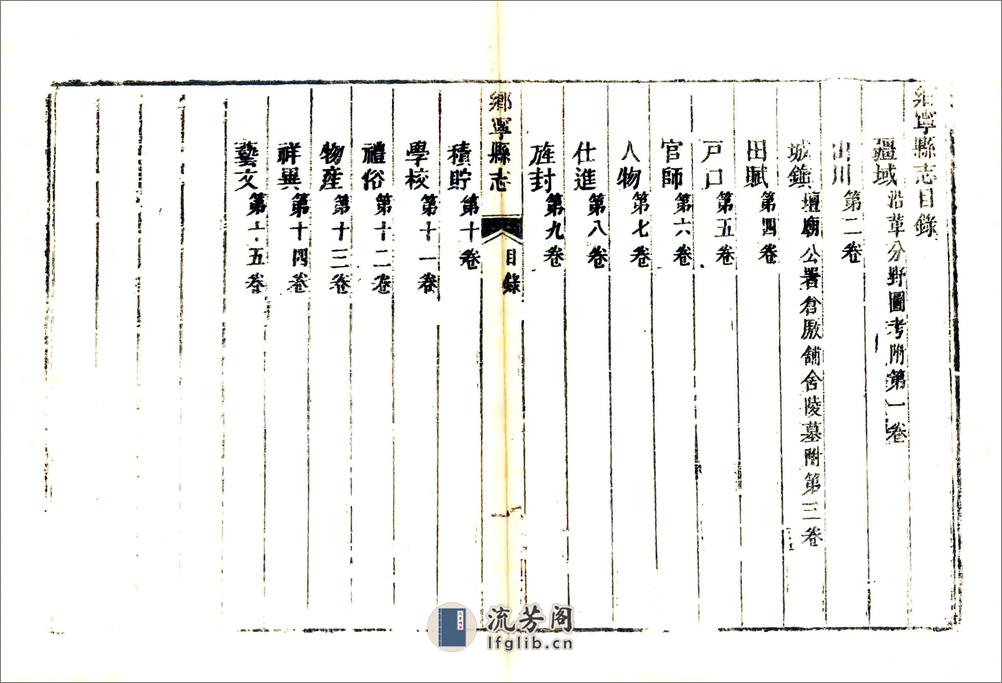 鄉寧縣志目錄
疆域沿革分野圖考附第一卷
山川第二卷
城鎮壇廟公署倉廒舖舍陵墓附第三卷
田賦第四卷
戸口第五卷
官師第六卷
人物第七卷
仕進第八卷
旌封第九卷
鄉寧縣志 目錄
積貯第十卷
學校第十一卷
禮俗第十二卷
物產第十三卷
祥異第十四卷
藝文第十五卷
流芳阁
lfglib.cn